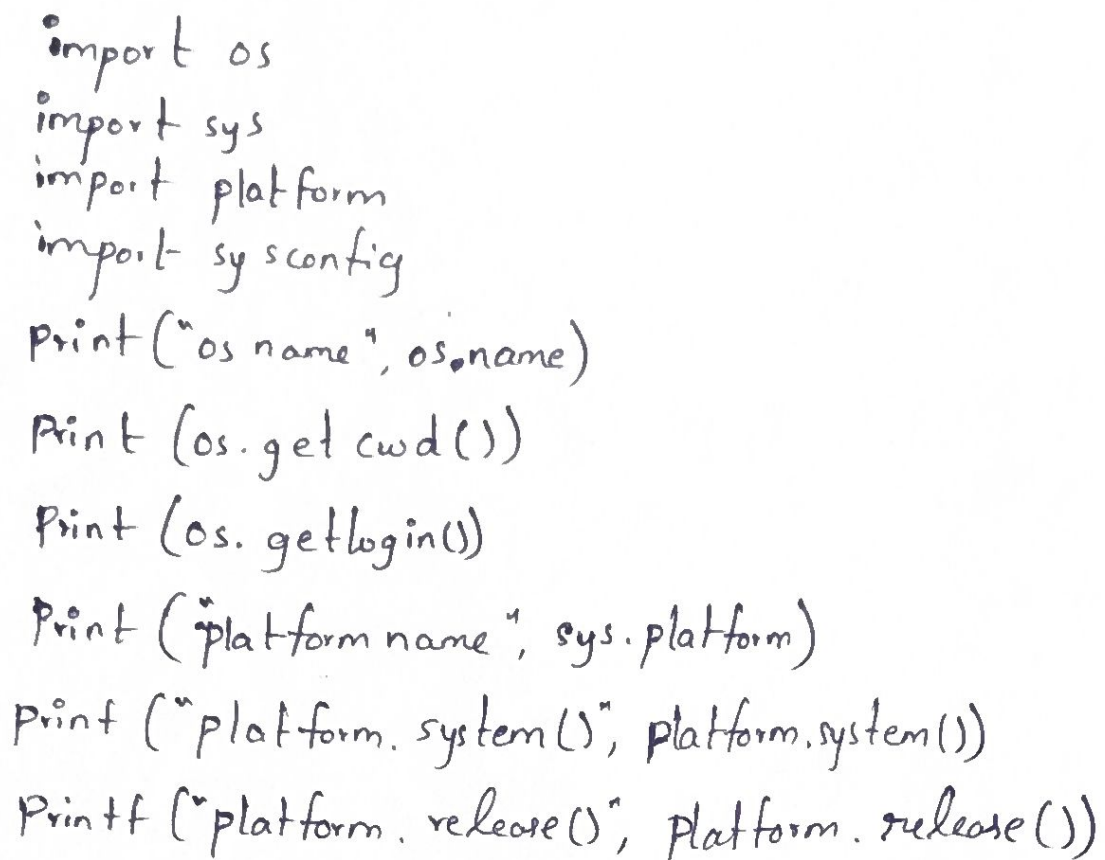 import os
import sys
import platform
import sysconfig
print("os name", os.name)
Print (os.get cwd())
Print (os. getlogin())
Print ("platform name", sys.platform)
print ("platform. system()", platform.system())
Printf ("platform. release()", platform. release())